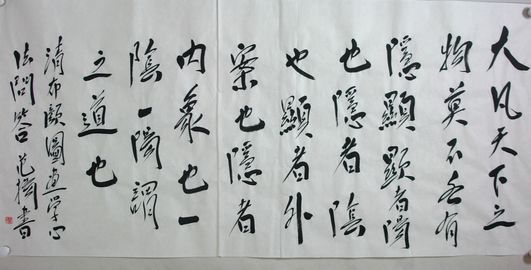 大凡天下之
物莫不各有
隱顯顯者陽
也隱者陰
也顯者外
案也隱者
内象也一
陰一陽謂
之道也
清布顏圖畫學心
法問答 范書